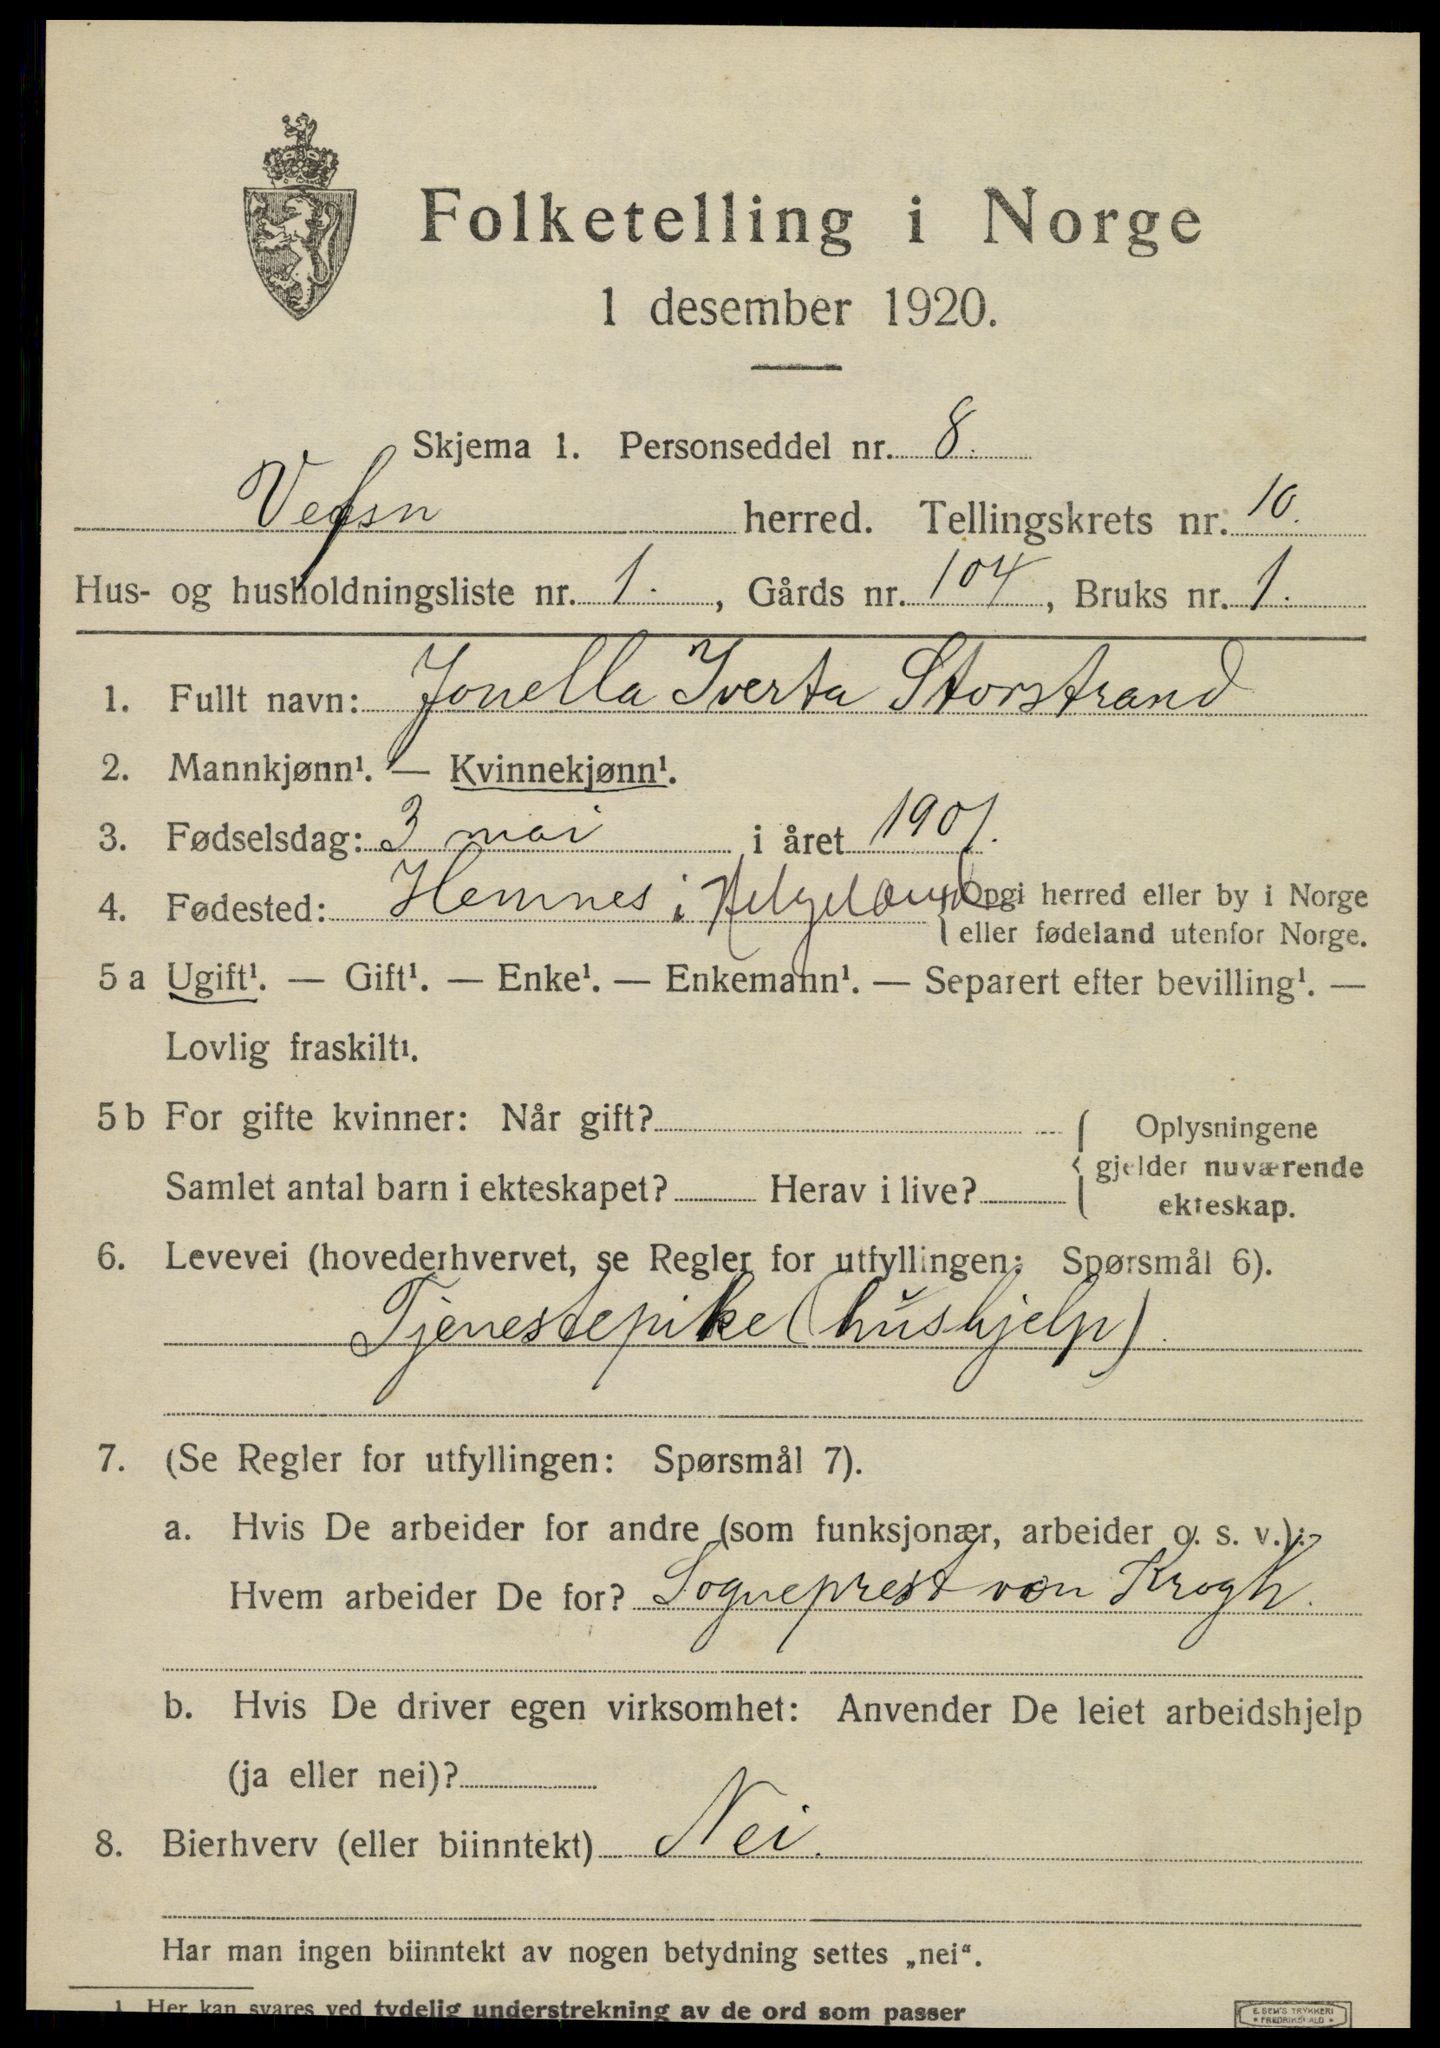 Folketelling i Norge
1 desember 1920.
Skjema 1. Personseddel nr. 8.
Vefsn herred. Tellingskrets nr. 10.
Hus- og husholdningsliste nr. 1. , Gårds nr. 104 , Bruks nr. 1.
1. Fullt navn: Jonella Iverta Storstrand
2. Mannkjønn¹. — Kvinnekjønn¹.
3. Fødselsdag: 3 mai i året 1901.
4. Fødested: Hemnes i Helgeland { Opgi herred eller by i Norge
eller fødeland utenfor Norge.
5 a Ugift¹. — Gift¹. — Enke¹. — Enkemann¹. — Separert efter bevilling¹. —
Lovlig fraskilt¹.
5 b For gifte kvinner: Når gift? { Oplysningene
gjelder nuværende
Samlet antal barn i ekteskapet? Herav i live? ekteskap.
6. Levevei (hovederhvervet, se Regler for utfyllingen: Spørsmål 6).
Tjenestepike (hushjelp).
7. (Se Regler for utfyllingen: Spørsmål 7).
a. Hvis De arbeider for andre (som funksjonær, arbeider o. s. v.):
Hvem arbeider De for? Sogneprest von Krogh.
b. Hvis De driver egen virksomhet: Anvender De leiet arbeidshjelp
(ja eller nei)?
8. Bierhverv (eller biinntekt) Nei.
Har man ingen biinntekt av nogen betydning settes „nei“.
1 Her kan svares ved tydelig understrekning av de ord som passer
E. SEM'S TRYKKERI
* FREDRIKSHALD *